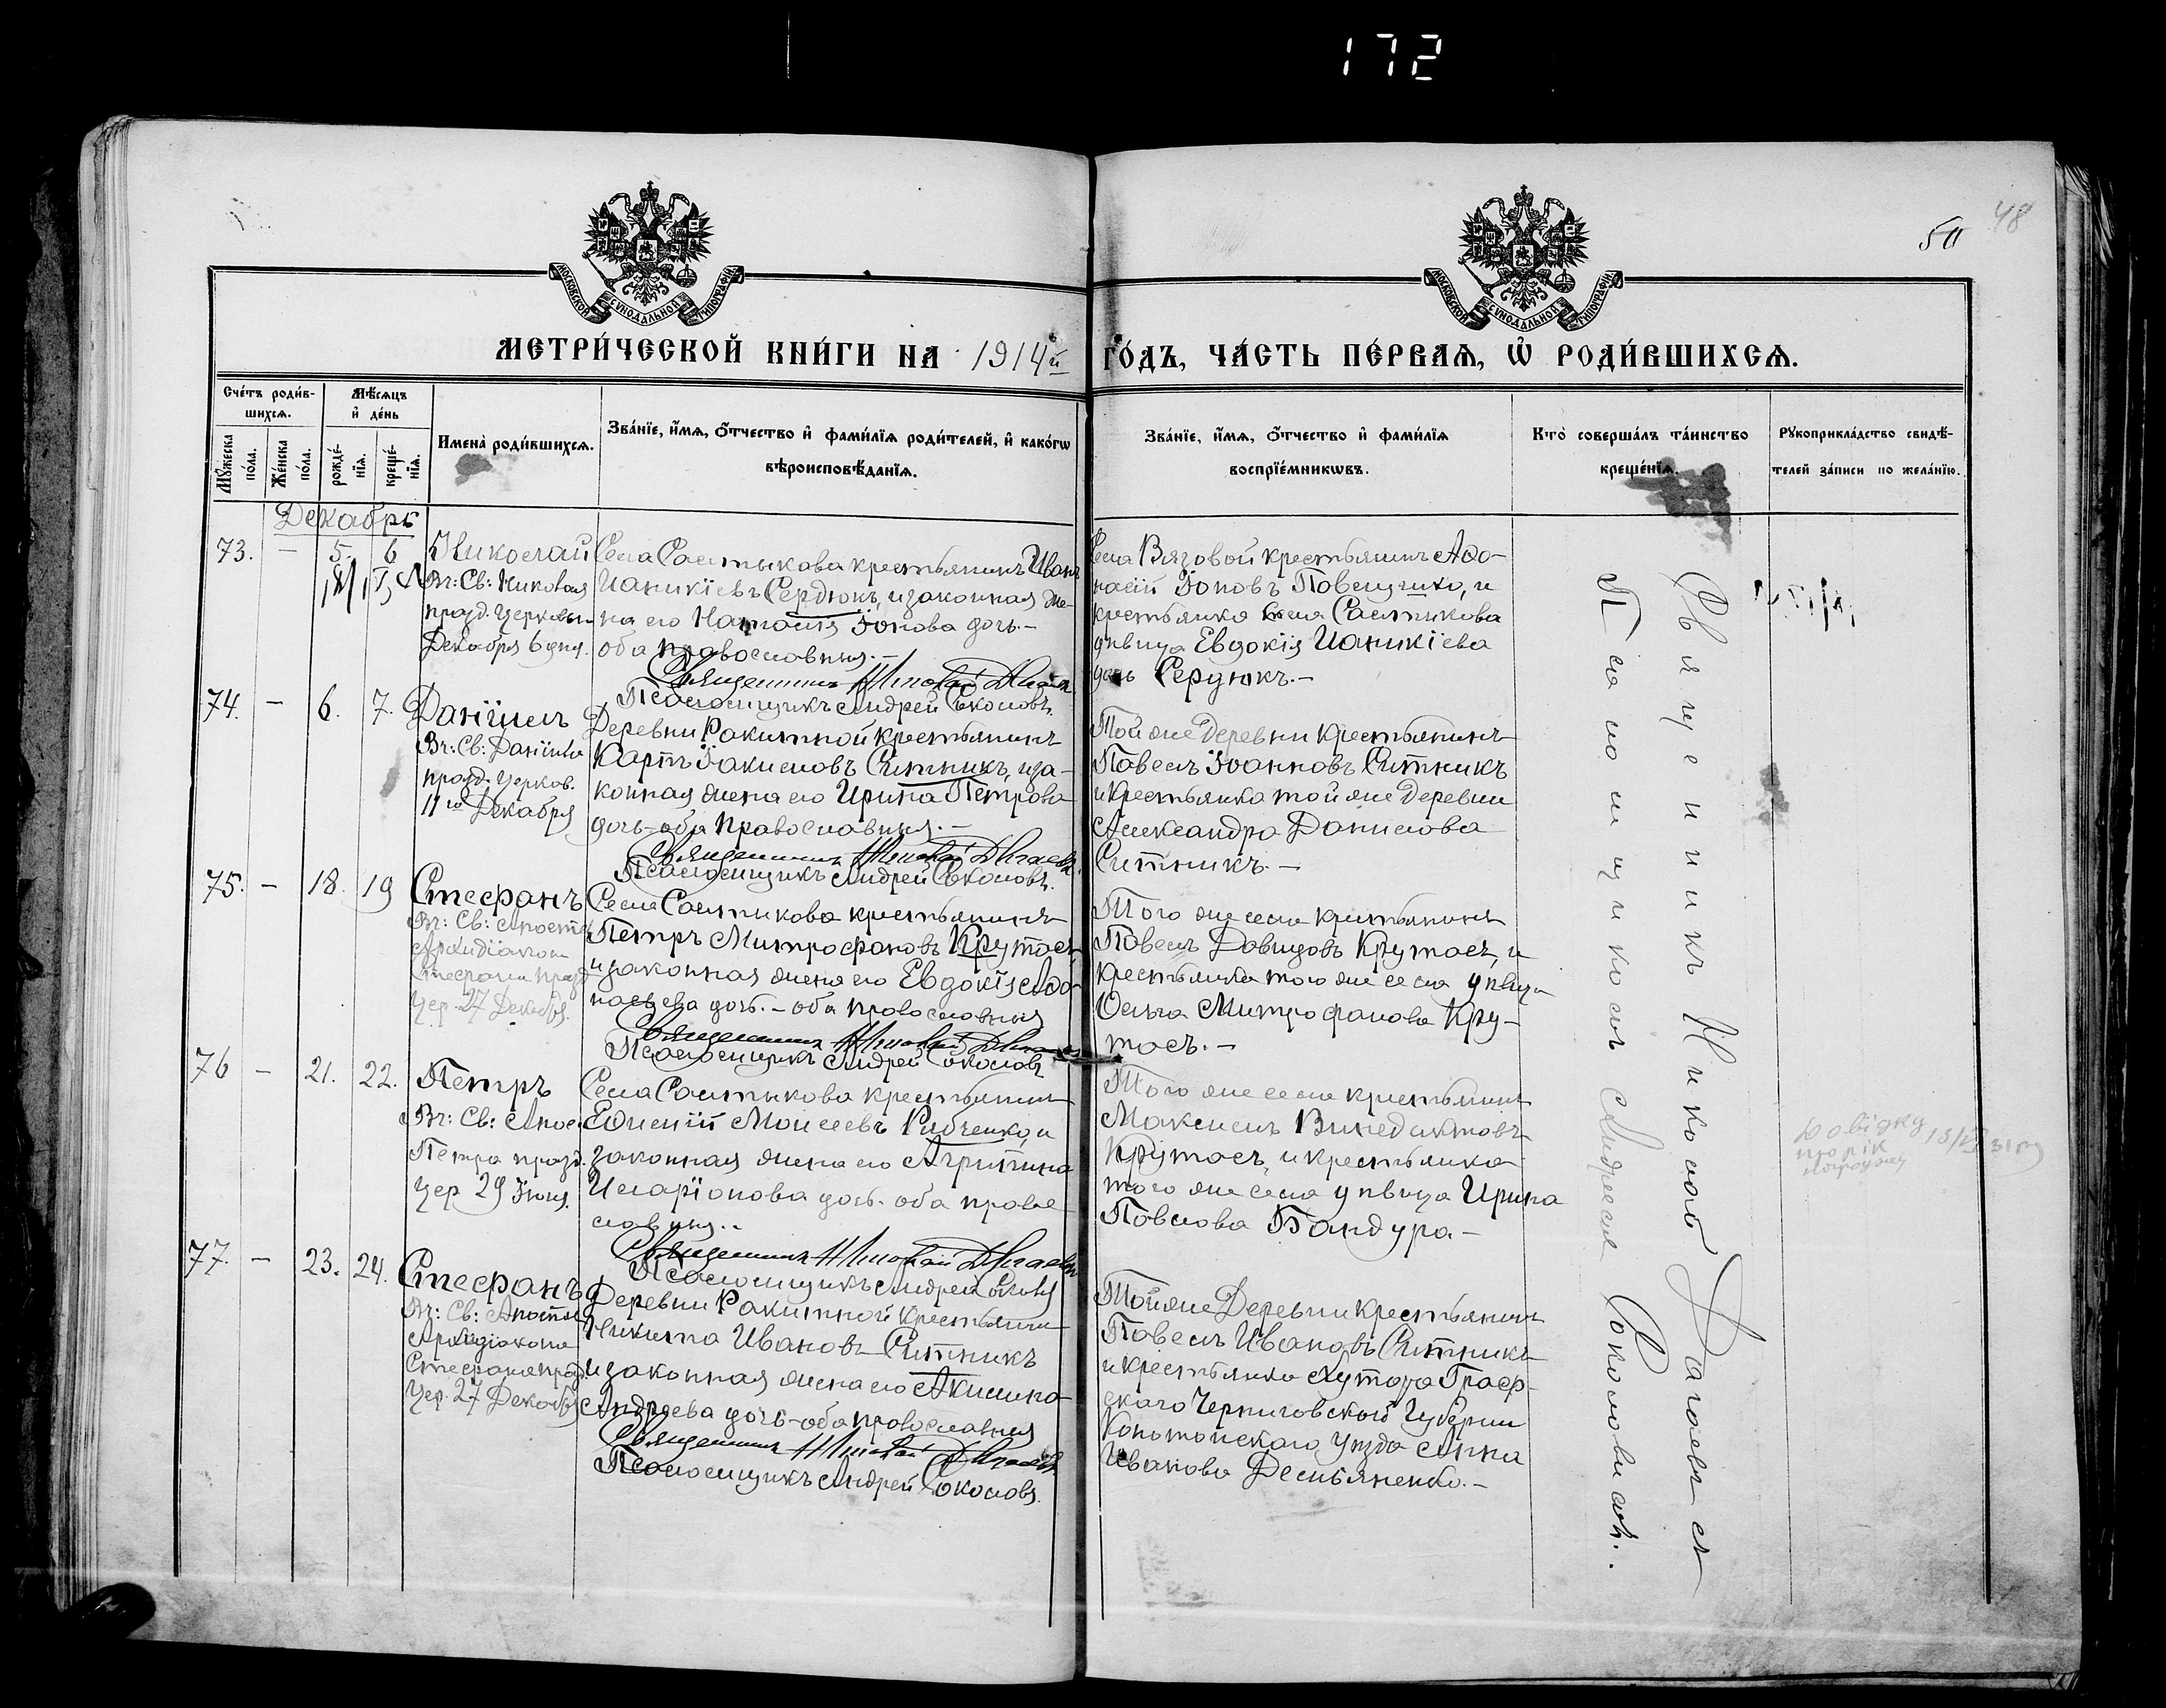 172
50
48
МОСКОВСКОЙ СѴНОДАЛЬНОЙ ТИПОГРАФІИ
МОСКОВСКОЙ СѴНОДАЛЬНОЙ ТИПОГРАФІИ
МЕТРИ́ЧЕСКОЙ КНИ́ГИ НА 1914й ГО́ДЪ, ЧА́СТЬ ПЕ́РВАѦ, Ѡ҆ РОДИ́ВШИХСѦ.
Сче́тъ роди́в-
шихсѧ.
Мѣ́сѧцъ
и҆ де́нь
Мꙋ́жеска
по́ла.
Же́нска
по́ла.
рожде́-
нїѧ.
креще́-
нїѧ.
Имена̀ роди́вшихсѧ.
Зва́нїе, и҆́мѧ, ѻ҆́тчество и҆ фами́лїѧ роди́телей, и҆ како́гѡ
вѣроисповѣ́данїѧ.
Зва́нїе, и҆́мѧ, ѻ҆́тчество и҆ фами́лїѧ
воспрїе́мникѡвъ.
Кто̀ соверша́лъ та́инство
креще́нїѧ.
Рꙋкоприкла́дство свидѣ́-
телей за́писи по жела́нїю.
Декабрь
73. — 5. 6
Николай
Въ: Св: Николая
празд. Церковью
Декабря 6 дня.
Села Салтыкова крестьянинъ Иванъ
Ианикіевъ Сердюкъ, и законная же-
на его Наталія Іонова дочь.—
оба православныя.—
Священникъ Николай Дагаевъ
Псаломщикъ Андрей Соколовъ.
Села Вязовой крестьянинъ Афо-
насій Іоновъ Павлученко, и
крестьянка села Салтыкова
дѣвица Евдокія Ианикіева
дочь Сердюкъ.—
74. — 6. 7.
Даніилъ
Въ: Св: Даніила
празд. Церков.
11го Декабря
Деревни Ракитной крестьянинъ
Карпъ Іакимовъ Ситникъ, и за-
конная жена его Ирина Петрова
дочь-оба православныя.—
Священникъ Николай Дагаевъ.
Псаломщикъ Андрей Соколовъ.
Той же деревни крестьянинъ
Павелъ Іоанновъ Ситникъ
и крестьянка той же деревни
Александра Данилова
Ситникъ.—
75. — 18. 19
Стефанъ
Въ: Св: Апост.
Архидіакона
Стефана празд.
Цер. 27 Декабр.
Села Салтыкова крестьянинъ
Петръ Митрофановъ Крутась,
и законная жена его Евдокія Афо-
насьева дочь.— оба православныя
Священникъ Николай Дагаевъ
Псаломщикъ Андрей Соколовъ
Того же села крестьянинъ
Павелъ Давидовъ Крутась, и
крестьянка того же села дѣвица
Ольга Митрофанова Кру-
тась.—
76 — 21. 22.
Петръ
Въ: Св: Апос.
Петра празд.
Цер 29 Іюня.
Села Салтыкова крестьянинъ
Евменій Моисеевъ Рибченко, и
законная жена его Агрипина
Иларіонова дочь. оба право-
славныя.—
Священникъ Николай Дагаевъ
Псаломщикъ Андрей Соколовъ
Того же села крестьянинъ
Максимъ Винедиктовъ
Крутась, и крестьянка
того же села дѣвица Ирина
Павлова Бандура—
77. — 23. 24.
Стефанъ
Въ: Св: Апостол.
Архидіакона
Стефана празд.
Цер. 27 Декабр.
Деревни Ракитной крестьянинъ
Никита Ивановъ Ситникъ
и законная жена его Акилина
Андреева дочь-оба православныя
Священникъ Николай Дагаевъ
Псаломщикъ Андрей Соколовъ.
Той же Деревни крестьянинъ
Павелъ Ивановъ Ситникъ
и крестьянка Хутора Граф-
скаго Черниговской Губерніи
Конотопскаго Уѣзда Анна
Иванова Демьяненко.—
Священникъ Николай Дагаевъ съ
Псаломщикомъ Андреемъ Соколовымъ.
Довідку
про рік